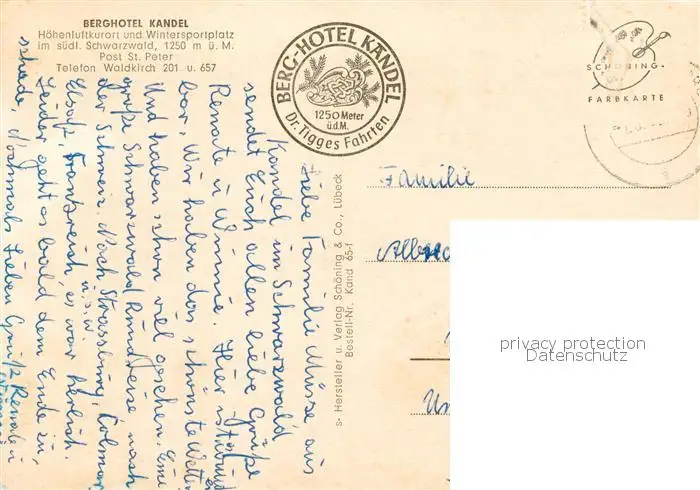 BERGHOTEL KANDEL
Höhenluftkurort und Wintersportplatz
im südl. Schwarzwald, 1250 m ü. M.
Post St. Peter
Telefon Waldkirch 201 u. 657
BERG-HOTEL KANDEL
1250 Meter
ü.d.M.
Dr. Tigges Fahrten
SCHÖNING-
FARBKARTE
Liebe Familie aus
Kandel im Schwarzwald
sendet Euch allen liebe Grüße
Renate u Winnie. Hier ist
bar. Wir haben das schönste Wetter
Und haben schon viel gesehen. Eine
große Schwarzwald Rundreise nach
der Schweiz. Nach Strassburg, Colmar
u.s.w
Elsaß, Frankreich, es war herlich.
Leider geht es bald dem Ende zu,
schade, Nochmals Lieben Grüße Renate u
s- Hersteller u. Verlag Schöning & Co., Lübeck
Bestell-Nr. Kand 65-f
Familie
privacy protection
Datenschutz